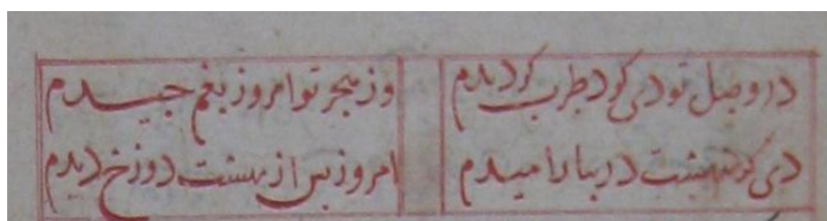 در وصل تو دی کرد طرب کردیدم
وز هجر تو امروز بغم جیدم
دی کرد بهشت در بیارامیدم
امروز پس از بهشت دوزخ دیدم